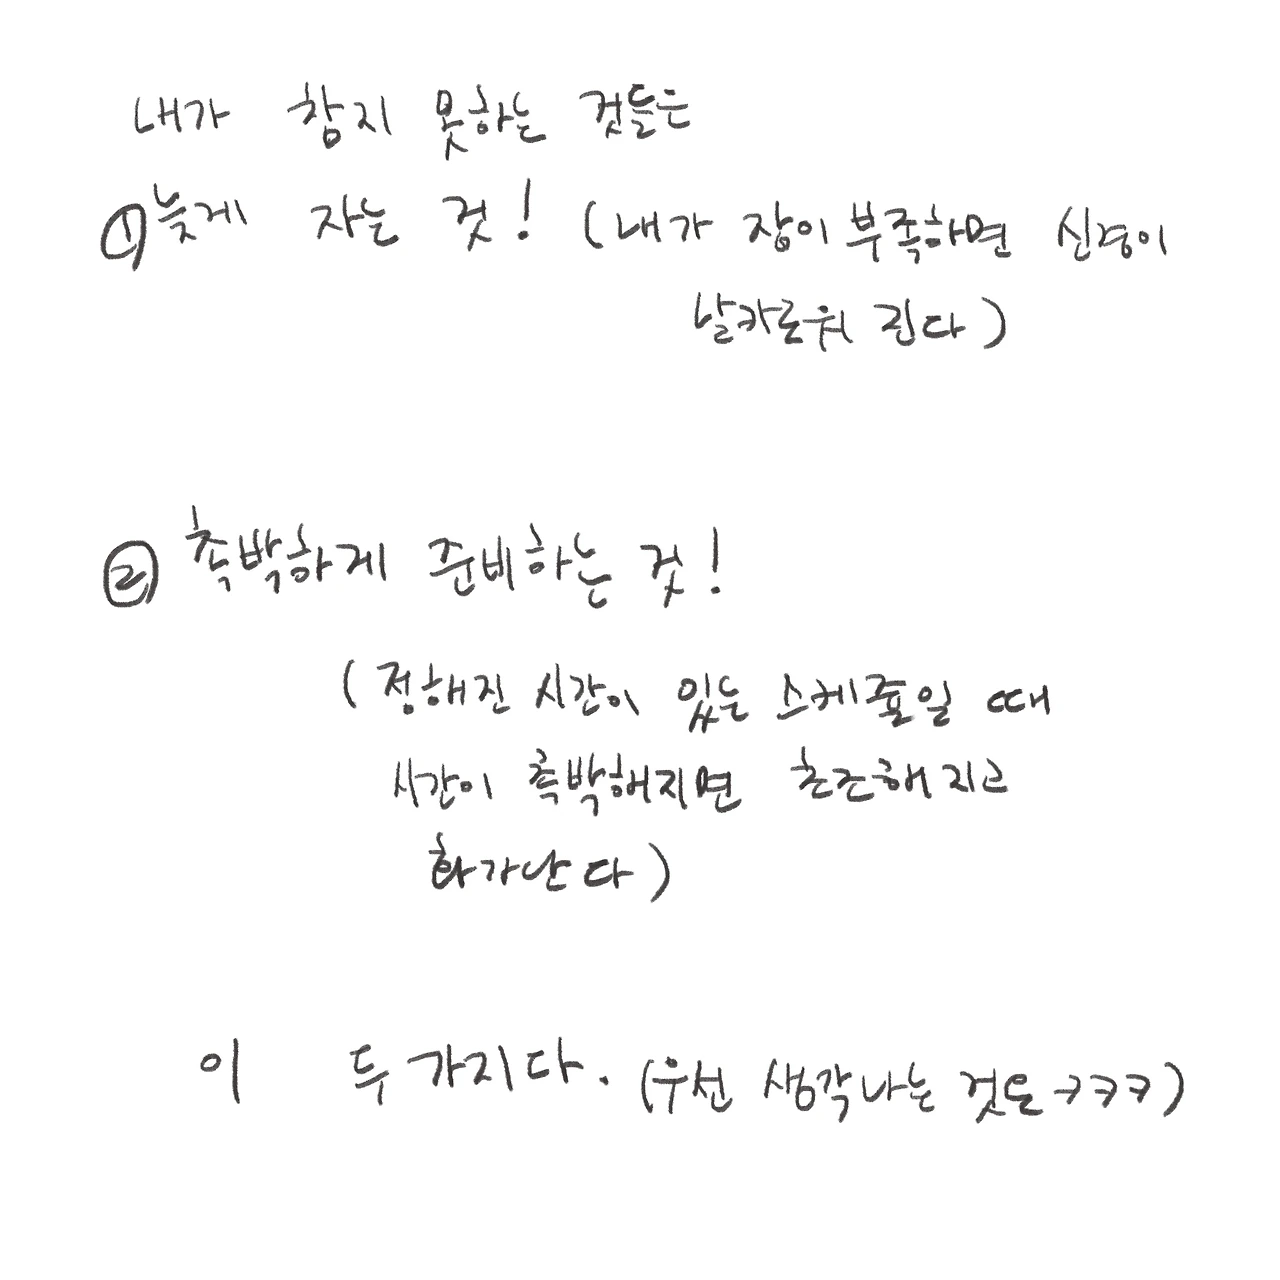 내가 참지 못하는 것들은
① 늦게 자는 것! (내가 잠이 부족하면 신경이
날카로워 진다)
② 촉박하게 준비하는 것!
(정해진 시간이 있는 스케줄일 때
시간이 촉박해지면 초조해지고
화가난다)
이 두가지다. (우선 생각나는 것은 ㅋㅋㅋ)